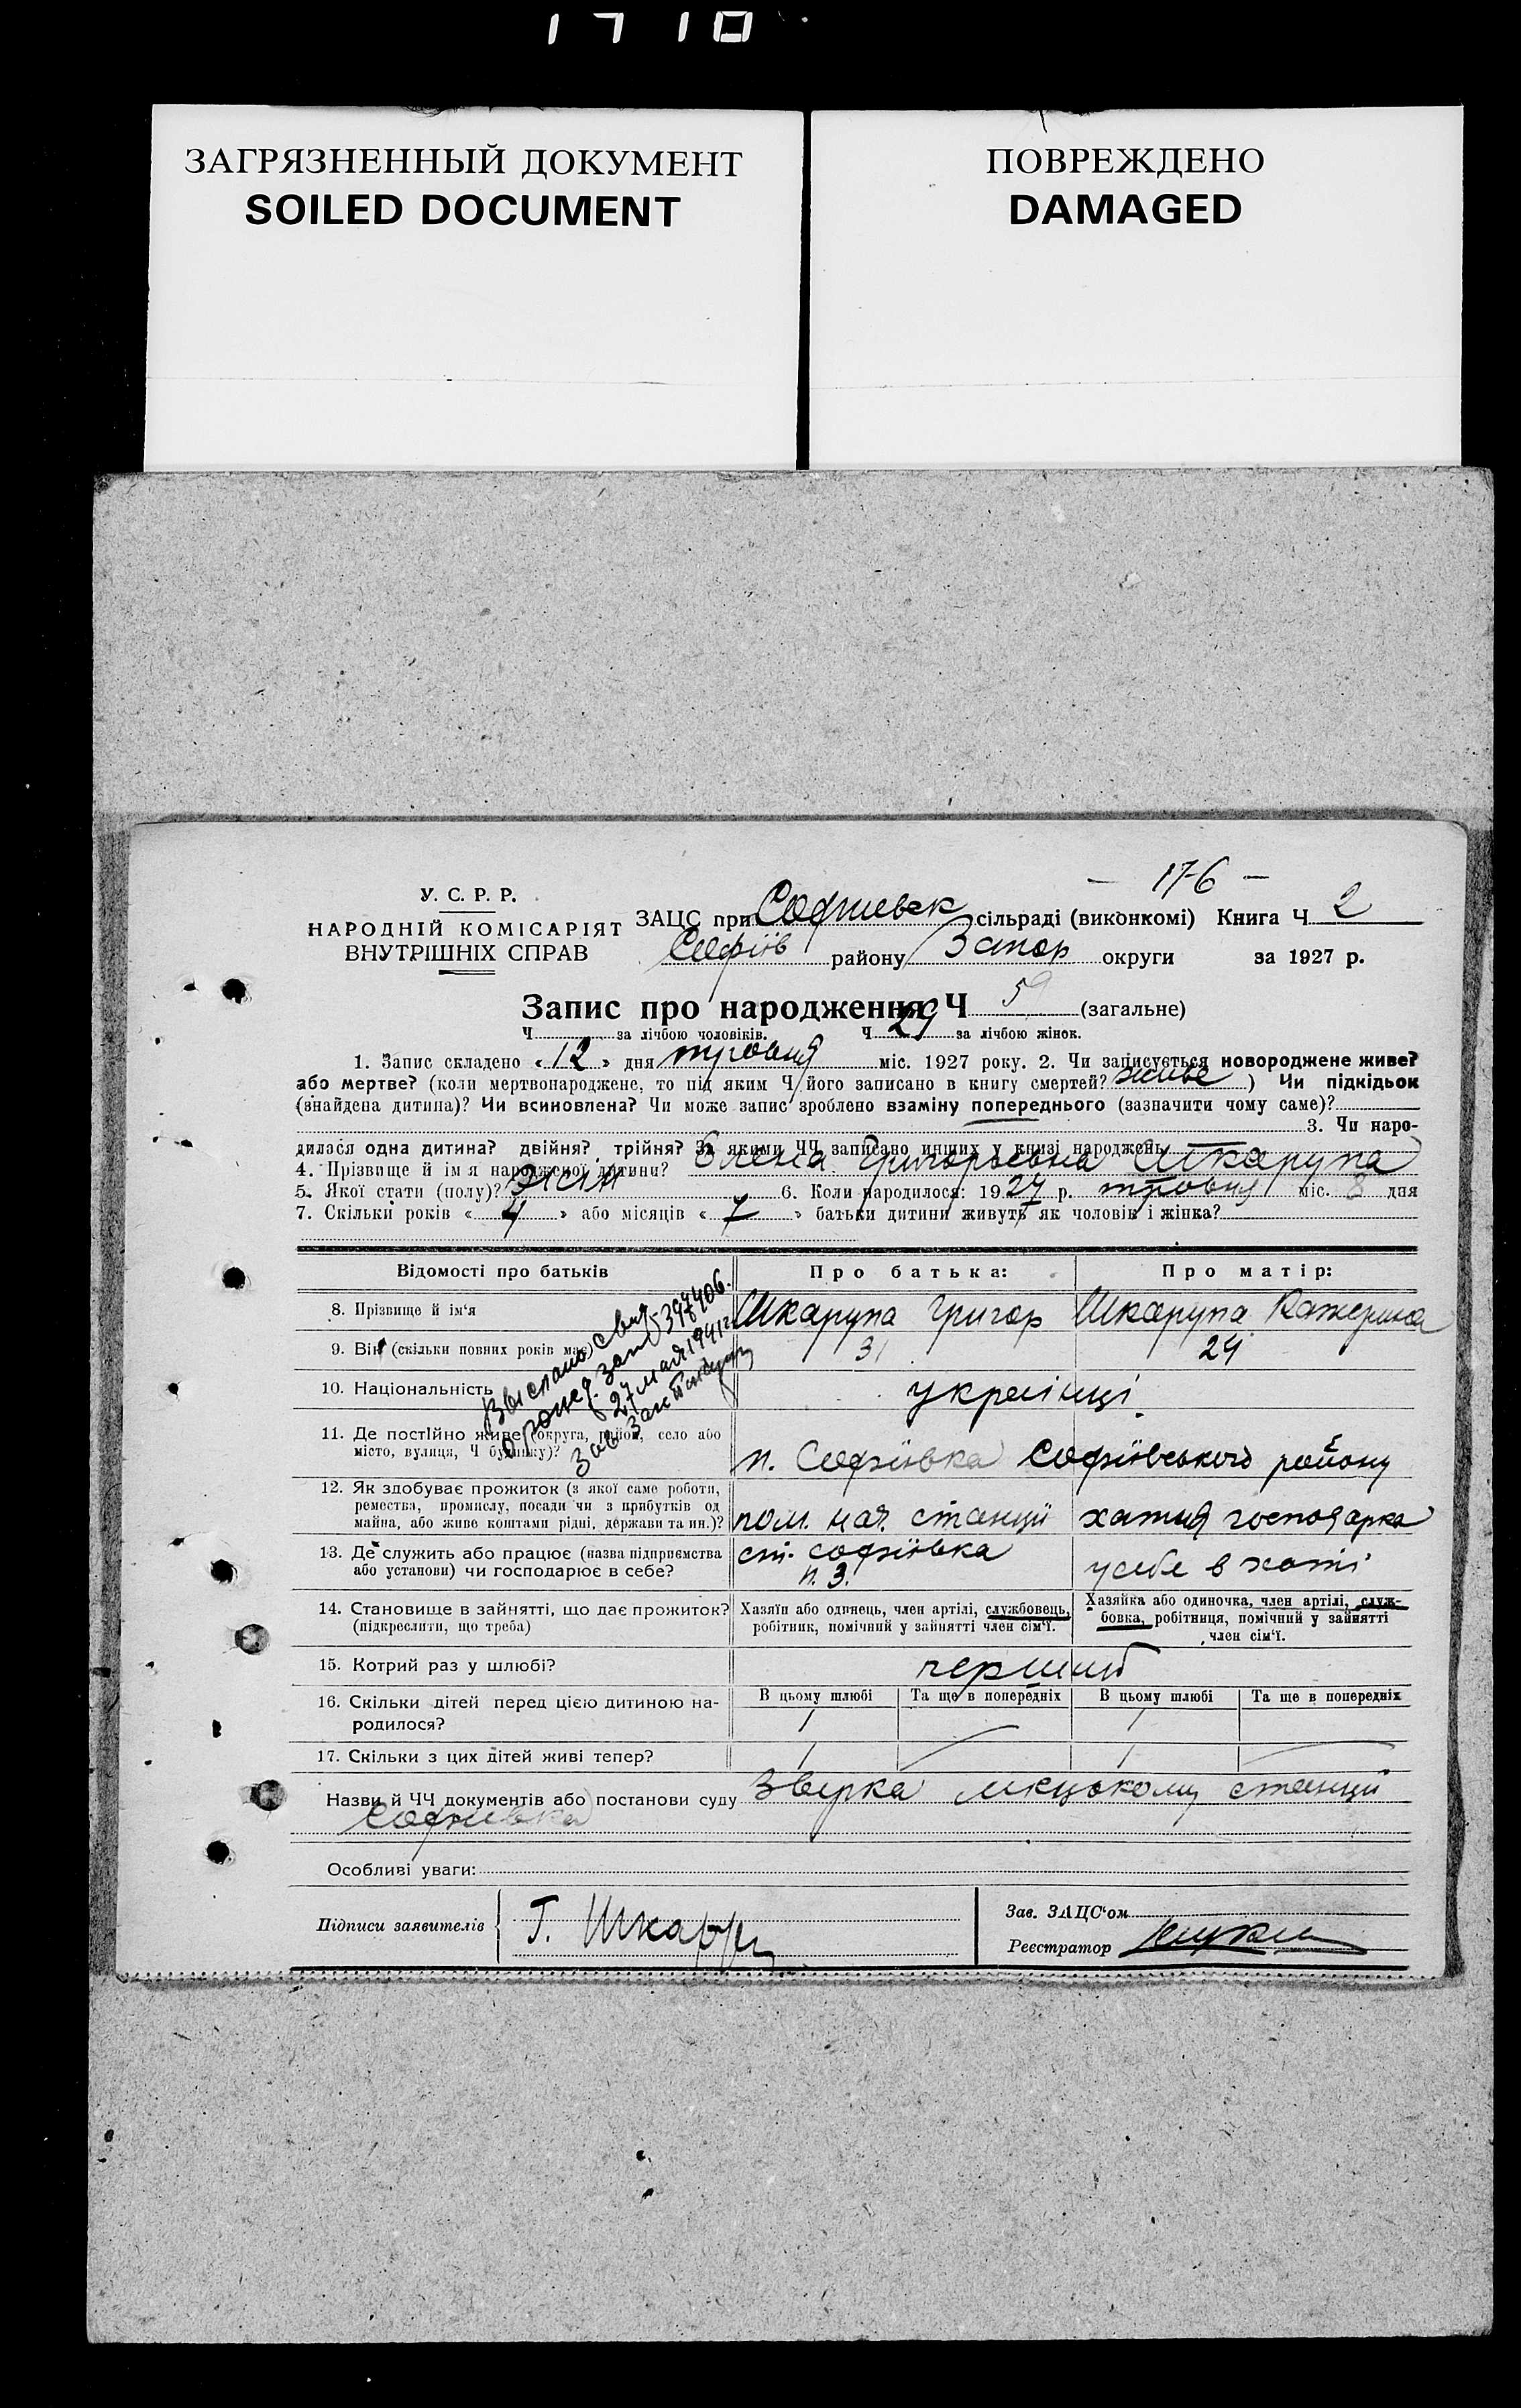 1710
ЗАГРЯЗНЕННЫЙ ДОКУМЕНТ
SOILED DOCUMENT
ПОВРЕЖДЕНО
DAMAGED
- 176 -
У. С. Р. Р.
НАРОДНІЙ КОМІСАРІЯТ
ВНУТРІШНІХ СПРАВ
ЗАЦС при Софиевск сільраді (виконкомі) Книга Ч 2
Софіїв району Запор округи за 1927 р.
Запис про народження Ч 59 (загальне)
Ч за лічбою чоловіків. Ч 29 за лічбою жінок.
1. Запис складено «12» дня травня міс. 1927 року. 2. Чи записується новороджене живе?
або мертве? (коли мертвонароджене, то під яким Ч його записано в книгу смертей? живе ) Чи підкідьок
(знайдена дитина)? Чи всиновлена? Чи може запис зроблено взаміну попереднього (зазначити чому саме)?
3. Чи наро-
дилася одна дитина? двійня? трійня? За якими ЧЧ записано инших у книзі народжень
4. Прізвище й ім'я народженої дитини? Елена Григорьевна Шкарупа
5. Якої стати (полу)? жін 6. Коли народилося: 1927 р. травня міс. 8 дня
7. Скільки років « 4 » або місяців « 7 » батьки дитини живуть як чоловік і жінка?
Відомості про батьків Про батька: Про матір:
8. Прізвище й ім'я Шкарупа Григор Шкарупа Катерина
9. Вік (скільки повних років має) 31 24
10. Національність українці
Выслано свид
о рожд. зап 397406.
27 мая 1941 г.
Зав Заг
11. Де постійно живе (округа, район, село або
місто, вулиця, Ч будинку)? п. Софіївка Софіївського району
12. Як здобуває прожиток (з якої саме роботи,
ремества, промислу, посади чи з прибутків од
майна, або живе коштами рідні, держави та ин.)? пом. нач. станції хатня господарка
13. Де служить або працює (назва підприємства
або установи) чи господарює в себе? ст. Софіївка
п. З. у себе в хаті
14. Становище в зайнятті, що дає прожиток?
(підкреслити, що треба)
Хазяїн або одинець, член артілі, службовець,
робітник, помічний у зайнятті член сім'ї.
Хазяйка або одиночка, член артілі, служ-
бовка, робітниця, помічний у зайнятті
член сім'ї.
15. Котрий раз у шлюбі? перший
16. Скільки дітей перед цією дитиною на-
родилося?
В цьому шлюбі Та ще в попередніх В цьому шлюбі Та ще в попередніх
1 1
17. Скільки з цих дітей живі тепер? 1 1
Назви й ЧЧ документів або постанови суду Звірка станції
Софиевка
Особливі уваги:
Підписи заявителів Г. Шкаруп
Зав. ЗАЦС'ом
Реєстратор